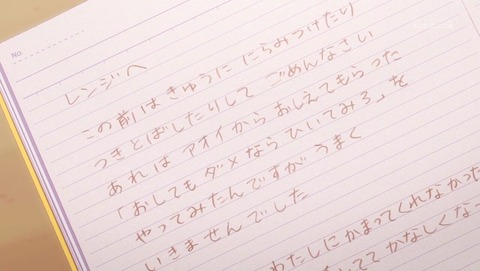 No.
レンジへ
この前はきゅうに にらみつけたり
つきとばしたりして ごめんなさい
あれは アオイから おしえてもらった
「おしてもダメなら ひいてみろ」を
やってみたんですが うまく
いきませんでした
わたしに かまってくれなかった
かなしくな